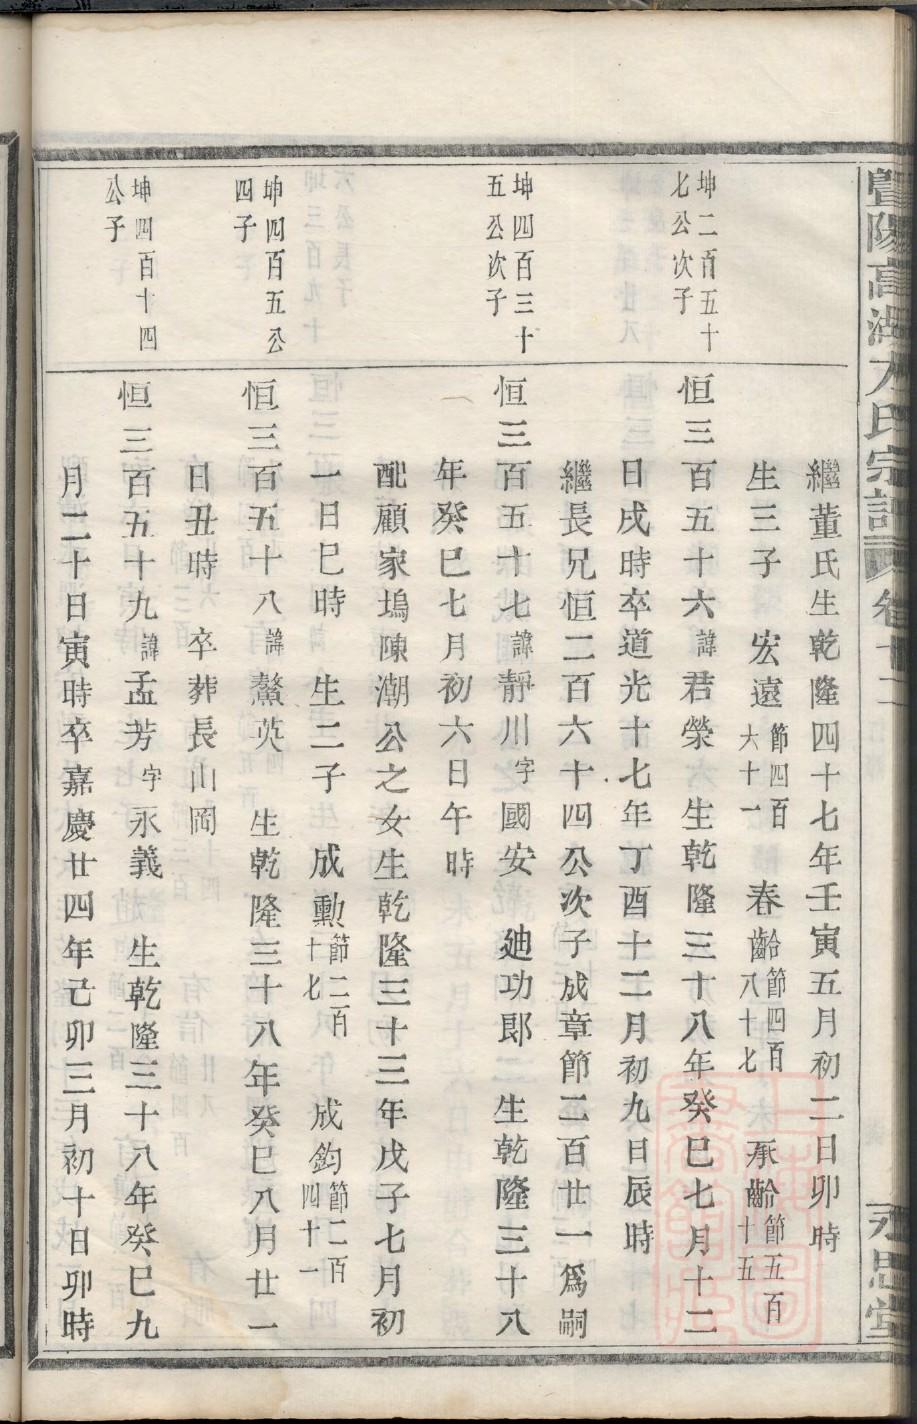 暨陽高湖方氏宗譜 卷十二 永思堂
繼董氏生乾隆四十七年壬寅五月初二日卯時
生三子 宏遠節四百六十一 春齡節四百八十七 承齡節五百十五
坤二百五十七公次子
恒三百五十六諱君榮 生乾隆三十八年癸巳七月十二
日戌時卒道光十七年丁酉十二月初九日辰時
繼長兄恒二百六十四公次子成章節二百廿一爲嗣
坤四百三十五公次子
恒三百五十七諱靜川字國安 廸功郎 生乾隆三十八
年癸巳七月初六日午時
配顧家塢陳潮公之女生乾隆三十三年戊子七月初
一日巳時 生二子 成勲節二百十七 成鈞節二百四十一
坤四百五公四子
恒三百五十八諱鰲英 生乾隆三十八年癸巳八月廿一
日丑時 卒葬長山岡
坤四百十四公子
恒三百五十九諱孟芳字永義 生乾隆三十八年癸巳九
月二十日寅時卒嘉慶廿四年己卯三月初十日卯時